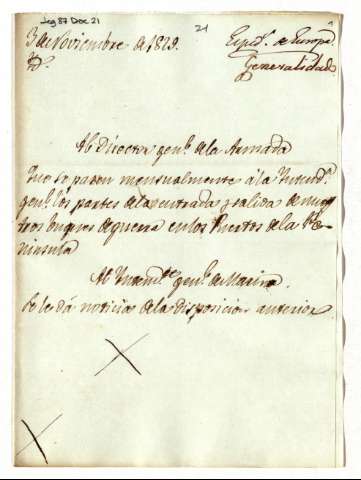 Leg 87 Doc 21
21
3 de Noviembre de 1829.
Exped.s de Europa
Generalidad
Al Director gen.l de la Armada
Que se pasen mensualmente á la Yntend.a
gen.l los partes de la entrada y salida de nuestros
buques de guerra en los Puertos de la Pe-
ninsula
Al Yntend.te gen.l de Marina.
Se le dá noticia de la disposicion anterior